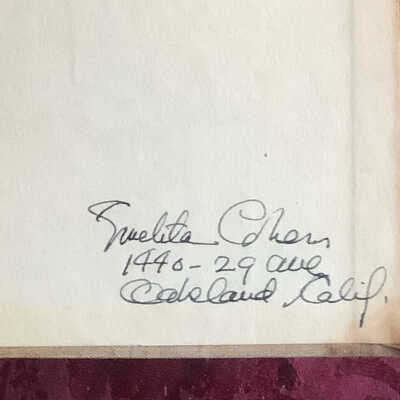 Cohen
1440 - 29 Ave
Oakland, Calif.